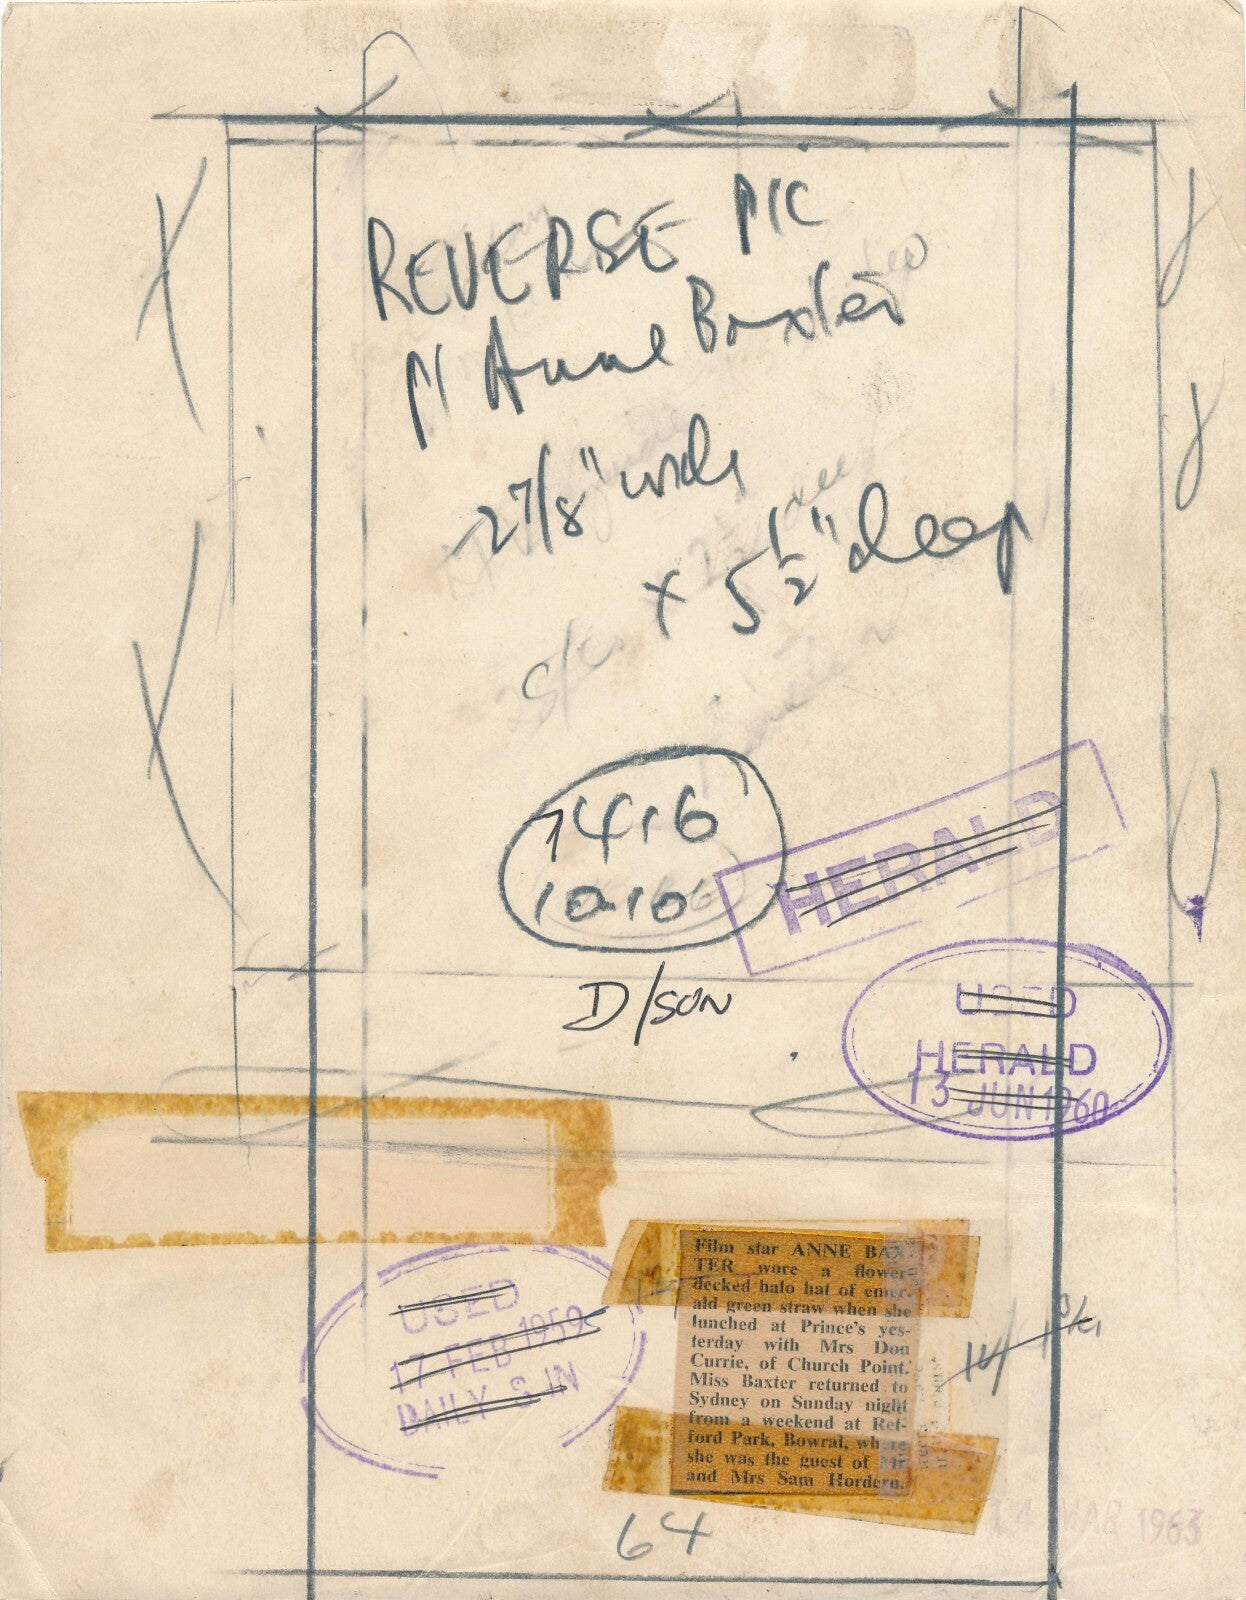 REVERSE PIC
P/ Anne Baxter
2 7/8" wide
x 5 1/2" deep
S/C
7416
1010
HERALD
D/SON
USED
HERALD
13 JUN 1960
USED
17 FEB 1959
DAILY SUN
Film star ANNE BAX-
TER wore a flower-
decked halo hat of emer-
ald green straw when she
lunched at Prince's yes-
terday with Mrs Don
Currie, of Church Point.
Miss Baxter returned to
Sydney on Sunday night
from a weekend at Ret-
ford Park, Bowral, where
she was the guest of Mr
and Mrs Sam Hordern.
14 MAR 1963
64